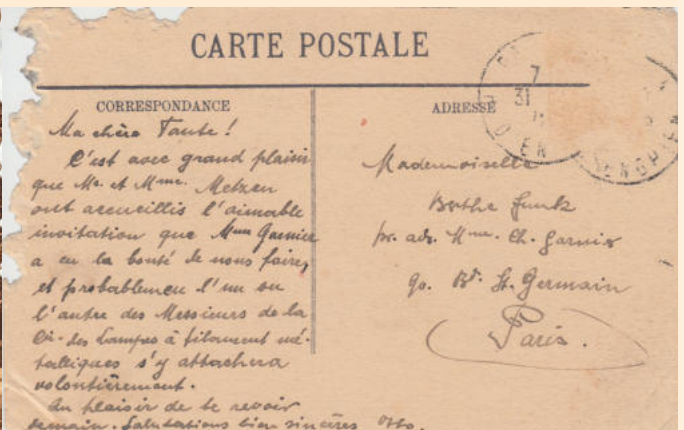 CARTE POSTALE
CORRESPONDANCE
Ma chère Tante!
C'est avec grand plaisir
que Mr. et Mme. Metzen
ont accueillis l'aimable
invitation que Mme Garnier
a eu la bonté de nous faire,
et probablemen l'un ou
l'autre des Messieurs de la
Cie. des Lampes à filament mé-
talliques s'y attachera
volontièrement.
Au plaisir de te revoir
demain. Salutations bien sincères Otto.
ADRESSE
Mademoiselle
Berthe Funk
pr. adr. Mme. Ch. Garnier
90. Bd. St. Germain
Paris.
7
31
D'ENGHIEN